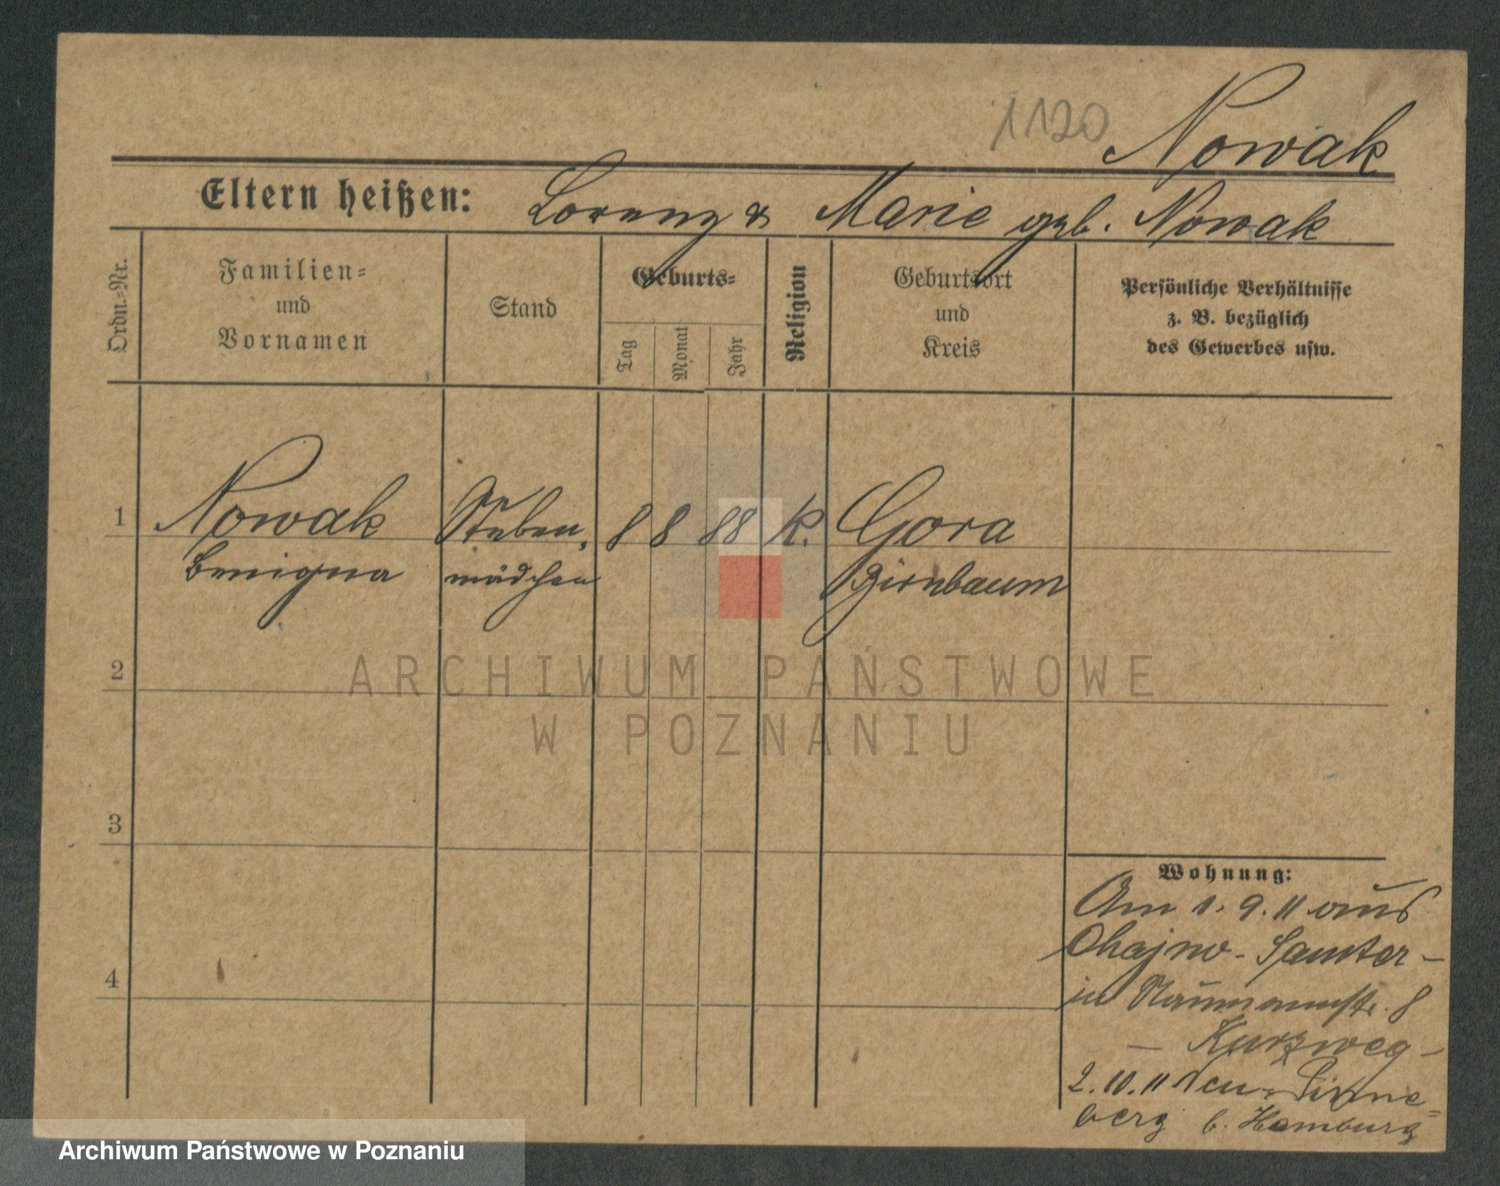 1120 Nowak
Eltern heißen: Lorenz & Marie geb. Nowak
Ordn.-Nr.
Familien-
und
Vornamen
Stand
Geburts-
Tag
Monat
Jahr
Religion
Geburtsort
und
Kreis
Persönliche Verhältnisse
z. B. bezüglich
des Gewerbes usw.
1 Nowak Stuben, 8 8 88 k. Gora
Benigna mädchen Birnbaum
2
3
4
Wohnung:
Am 1. 9. 11 aus
Chajno - Samter -
in Naumannstr. 8
— Kurzweg -
2. 10. 11 Neu-Pinne=
berg b. Hamburg
ARCHIWUM PAŃSTWOWE
W POZNANIU
Archiwum Państwowe w Poznaniu